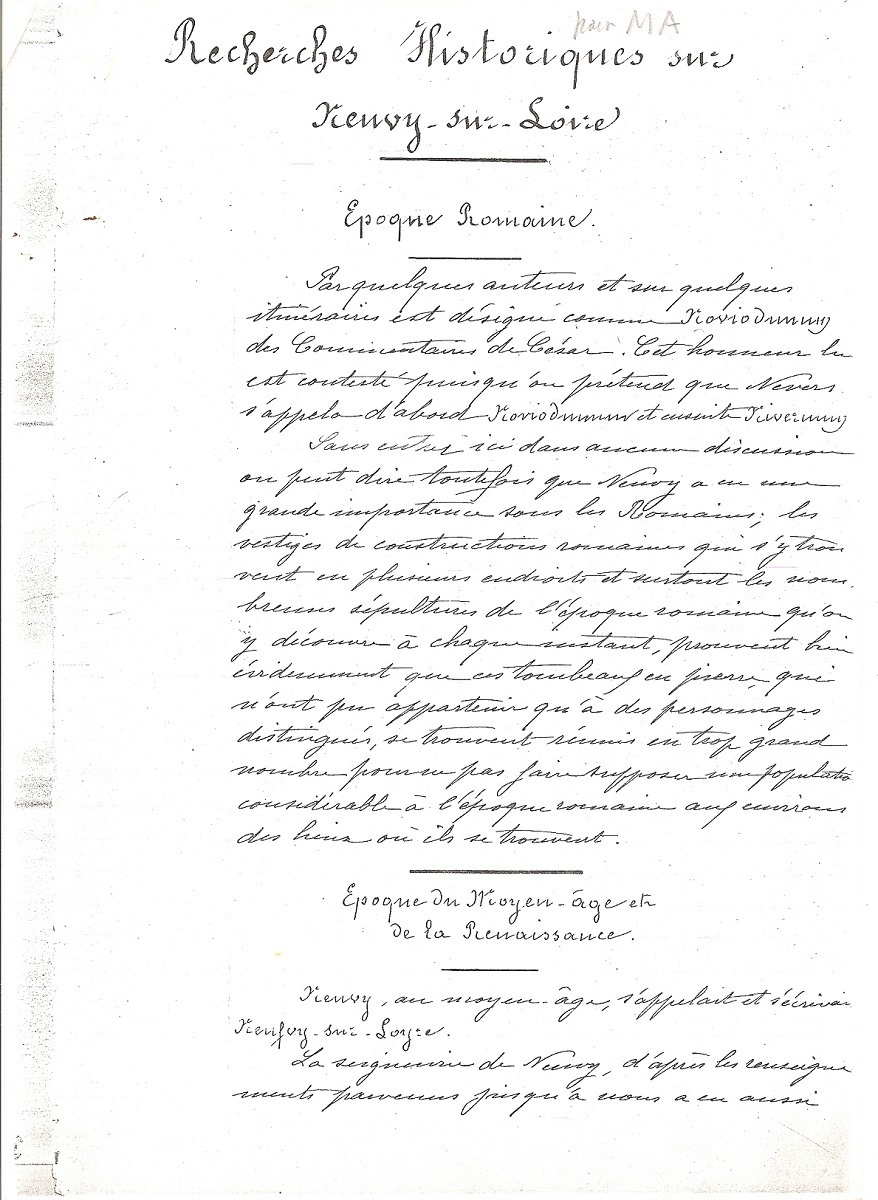 pour MA
Recherches Historiques sur
Neuvy-sur-Loire
Epoque Romaine.
Par quelques auteurs et sur quelques
itinéraires est désigné comme Noviodunum
des Commentaires de César. Cet honneur lu
est contesté puisqu'on prétend que Nevers
s'appela d'abord Noviodunum et ensuite Nivernum
Sans entrer ici dans aucune discussion
on peut dire toutefois que Neuvy a eu une
grande importance sous les Romains; les
vestiges de constructions romaines qui s'y trou
vent en plusieurs endroits et surtout les nom-
breuses sépultures de l'époque romaine qu'on
y découvre à chaque instant, prouvent bien
évidemment que ces tombeaux en pierre, qui
n'ont pu appartenir qu'à des personnages
distingués, se trouvent réunis en trop grand
nombre pour ne pas faire supposer une populatio
considérable à l'époque romaine aux environs
des lieux où ils se trouvent.
Epoque du Moyen-âge et
de la Renaissance.
Neuvy, au moyen-âge, s'appelait et s'écrivai
Neufvy-sur-Loyre.
La seigneurie de Neuvy, d'après les renseigne
ments parvenus jusqu'à nous a eu aussi